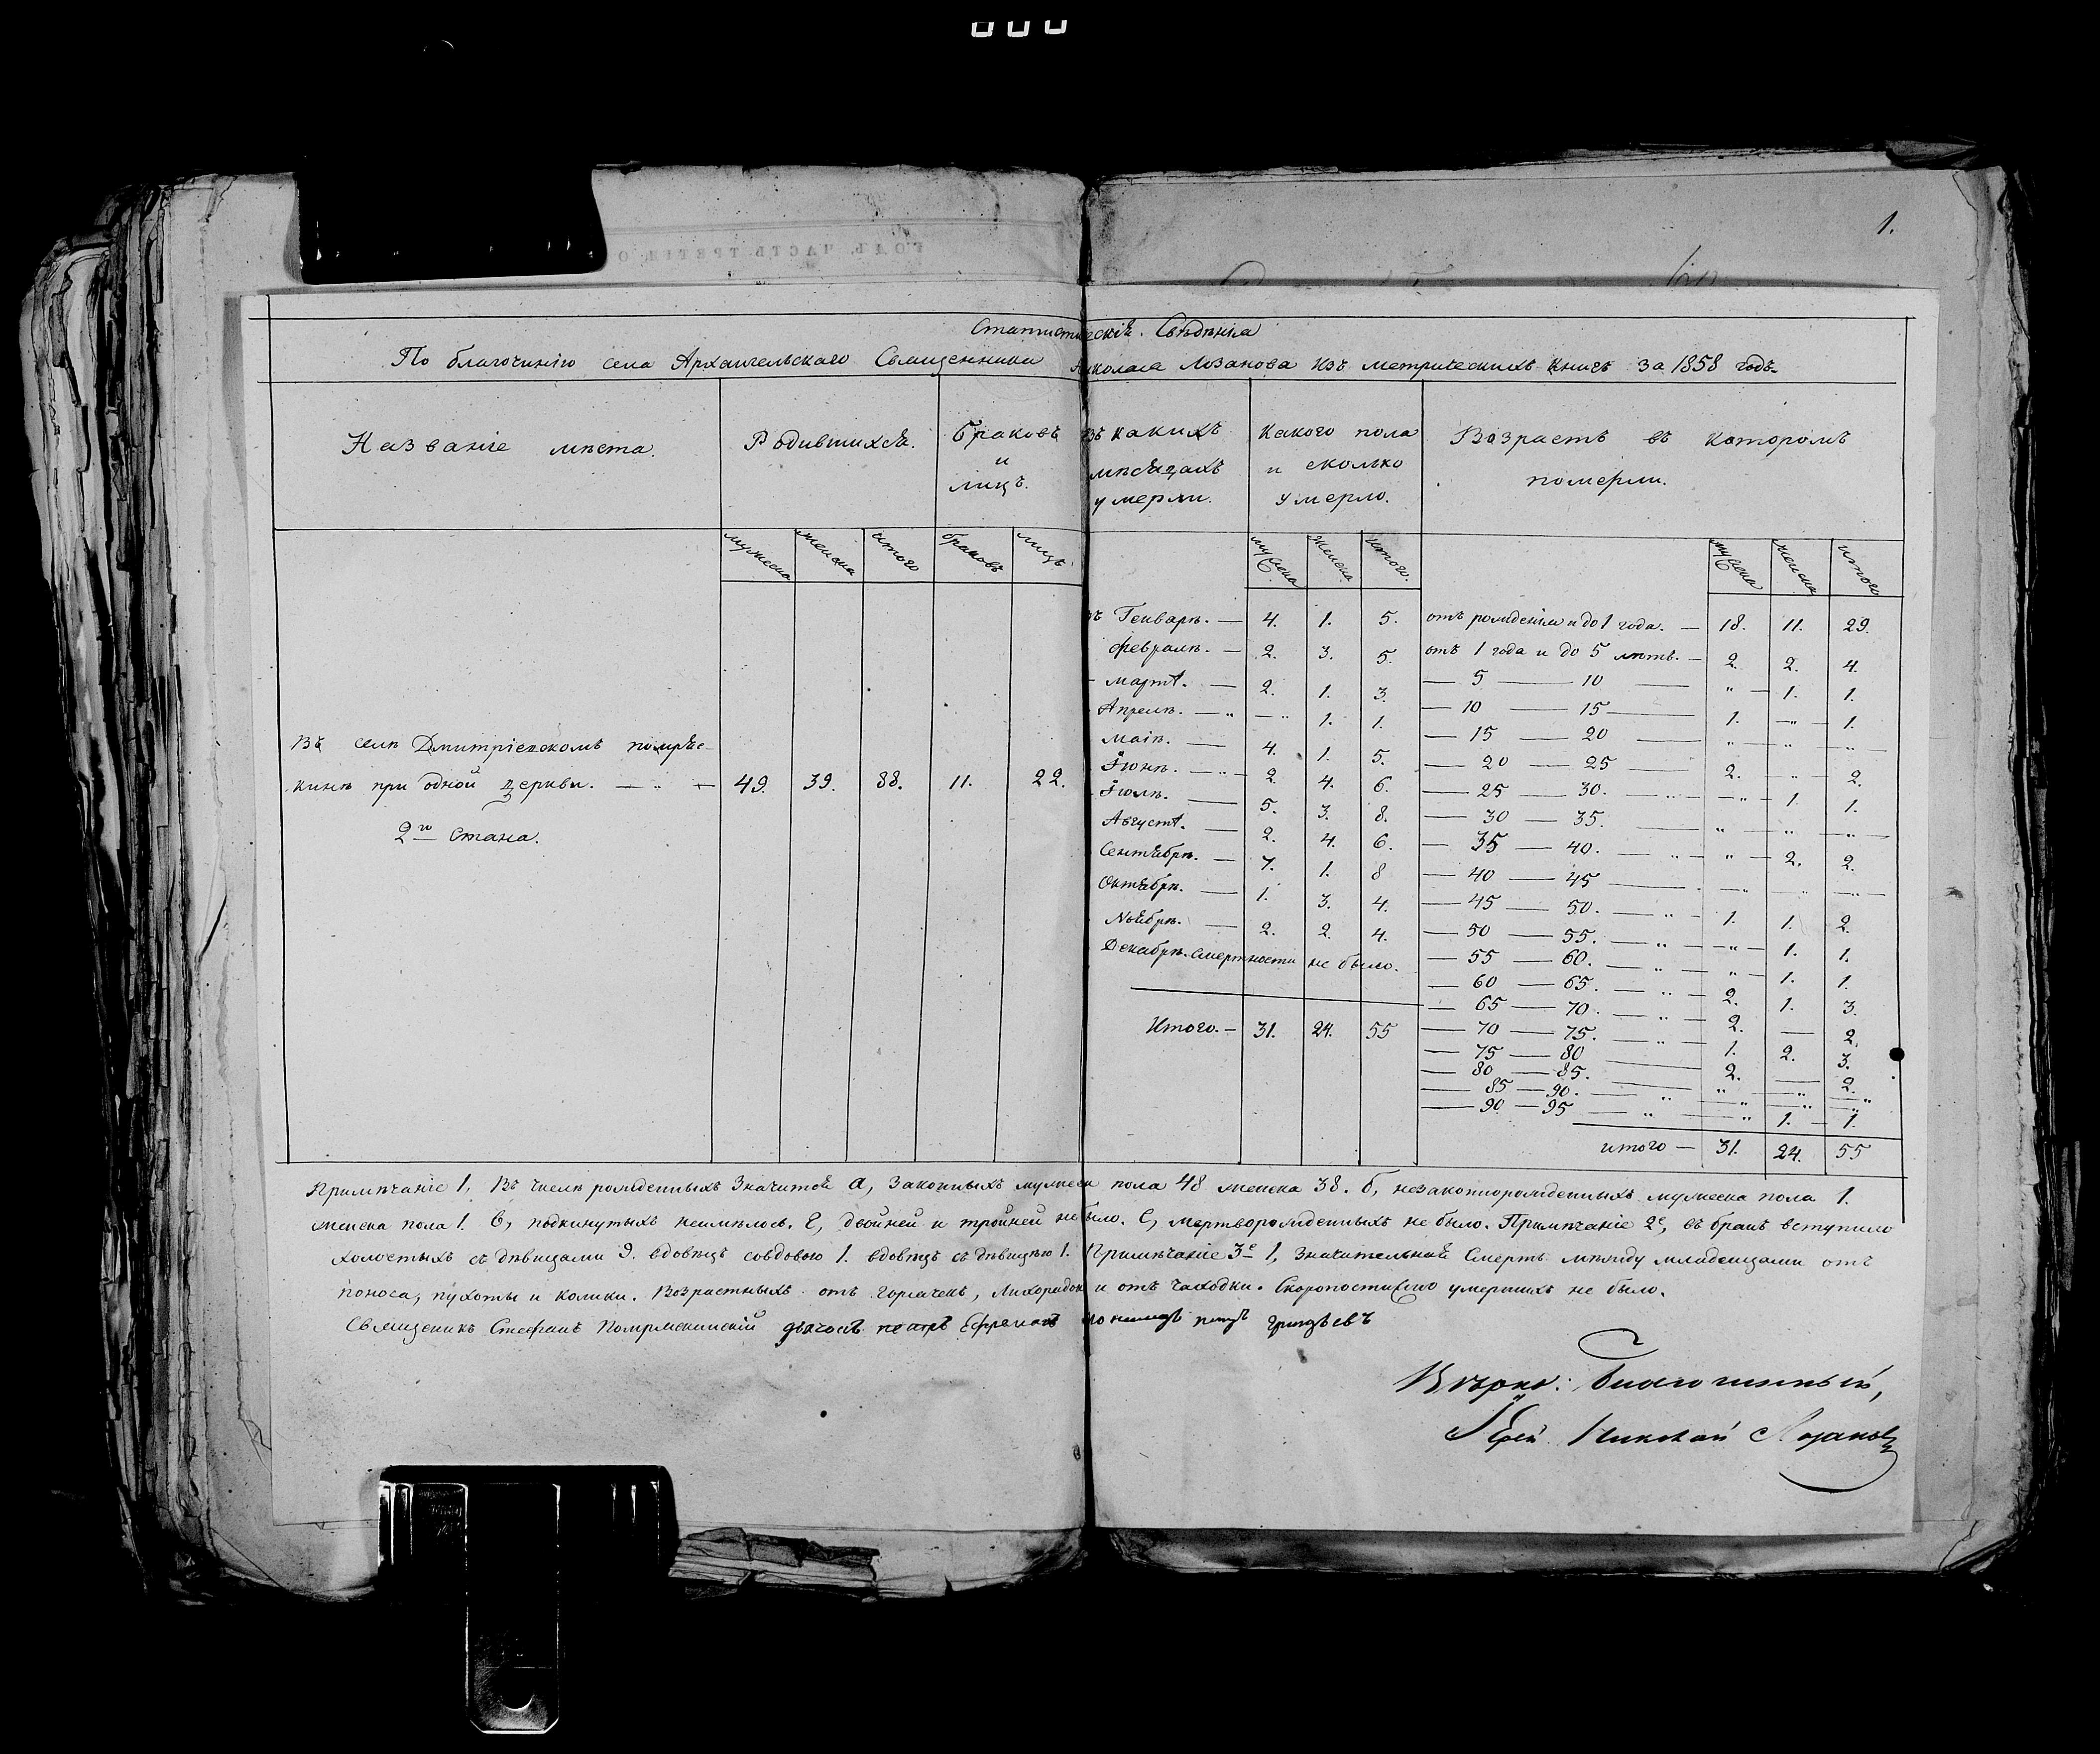 1.
Статистическія Свѣдѣнія
По благочинію села Архангельскаго Священника Николая Лозанова Изъ метрическихъ Книгъ За 1858 годъ
Названіе мѣста.
Родившихся.
Браковъ
и
лицъ.
Въ какихъ
мѣсяцахъ
умерли.
Какого пола
и сколько
умерло.
Возрастъ въ которомъ
померли.
мужеска женска итого браковъ лицъ мужеска женска итого. мужеска женска итого
Въ селѣ Дмитріевскомъ
кинѣ при одной церкви. — „ — 49. 39. 88. 11. 22.
2го Стана.
въ Генварѣ. — 4. 1. 5.
Февралѣ. — 2. 3. 5.
— Мартѣ. — 2. 1. 3.
Апрелѣ. — „ — „ 1. 1.
Маіѣ. — 4. 1. 5.
Іюнѣ. — „ — 2. 4. 6.
Іюлѣ. — 5. 3. 8.
Августѣ. — 2. 4. 6.
Сентябрѣ. — 7. 1. 8
Октябрѣ. — 1. 3. 4.
Ноябрѣ. — 2. 2. 4.
Декабрѣ. смертности не было.
Итого. — 31. 24. 55
отъ рожденія и до 1 года. — 18. 11. 29.
отъ 1 года и до 5 лѣтъ. — 2. 2. 4.
— 5 — 10 — „ — 1. 1.
— 10 — 15 — 1. — „ — 1.
— 15 — 20 — „ — „ — „ —
— 20 — 25 — 2. — „ — 2.
— 25 — 30. — „ — „ — 1. 1.
— 30 — 35. — „ — „ — „ —
— 35 — 40. — „ — „ — 2. 2.
— 40 — 45 — „ — „ — „ —
— 45 — 50. — „ — 1. 1. 2.
— 50 — 55. — „ — „ — 1. 1.
— 55 — 60. — „ — „ — 1. 1.
— 60 — 65. — „ — 2. 1. 3.
— 65 — 70. — „ — 2. — 2.
— 70 — 75. — „ — 1. 2. 3.
— 75 — 80 — 2. — 2.
— 80 — 85. — „ — „ — „
— 85 — 90. — „ — „ — „ — „
— 90 — 95 — „ — „ 1. — 1.
итого — 31. 24. 55
Примѣчаніе 1, Въ числѣ рожденныхъ Значится а, Законныхъ мужеска пола 48 женска 38. б, незаконнорожденныхъ мужеска пола 1.
женска пола 1. в, подкинутыхъ неимѣлось. г, двойней и тройней не было. е, мертворожденныхъ не было. Примѣчаніе 2е, въ бракъ вступило
холостыхъ съ дѣвицами 9. вдовецъ совдовою 1. вдовецъ съ дѣвицею 1. Примѣчаніе 3е 1, Значительная Смерть между младенцами отъ
поноса, пухоты и колики. Возрастныхъ отъ горячекъ, Лихорадокъ и отъ чахотки. Скоропостижно умершихъ не было.
Священикъ Стефанъ дьяконъ Петръ Ефремовъ
Вѣрно: Благочинный,
Іерей Николай Лозановъ